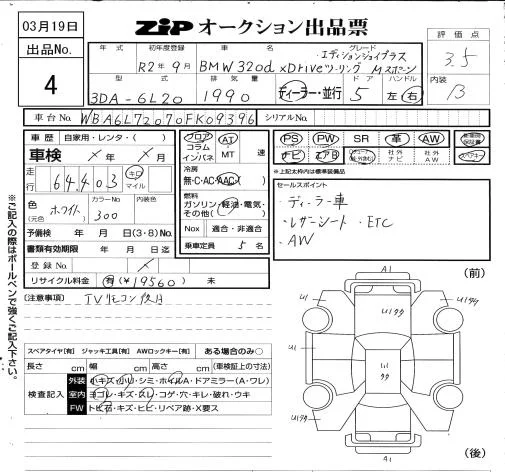 03月19日
ZIP オークション出品票
評価点
3.5
出品No.
4
年式 初年度登録 車名 グレード
R2年9月 BMW 320d xDriveツーリング
エディションジョイプラス
Mスポーツ
内装
B
型式 排気量 ドア ハンドル
3DA-6L20 1990 ディーラー・並行 5 左 右
車台No. WBA6L72070FK09396 シリアルNo.
車歴 自家用・レンタ・( )
フロア
コラム
インパネ
AT
MT 速
PS PW SR 革 AW
ナビ エアB 社外ナビ 社外AW
※上記太枠内は標準装備品
車検 年 月
冷房
無・C・AC・AAC
走行 64,403 キロ マイル
燃料
ガソリン・軽油・電気・
その他( )
セールスポイント
・ディーラー車
・レザーシート ・ETC
・AW
色(元色) ホワイト カラーNo 300 内装色
予備検 年 月 日(3・8)No.
Nox 適合・非適合
書類有効期限 年 月 日迄
乗車定員 5 名
登録No.
リサイクル料金 有(¥19560) 未
(注意事項) TVリモコン後日
※ご記入の際はボールペンで強くご記入下さい。
スペアタイヤ[有] ジャッキ工具[有] AWロックキー[有] ある場合のみ○
長さ cm 幅 cm 高さ cm (車検証上の寸法)
検査記入
外装 小キズ・小U・シミ・ホイルA・ドアミラー(A・ワレ)
室内 ヨゴレ・キズ・スレ・コゲ・穴・キレ・破れ・ウキ
FW トビ石・キズ・ヒビ・リペア跡・X要ス
(前)
A1
U1
U1ｸｸ
Uｸｸ
U1
U1
U1ｸｸ
A1
(後)